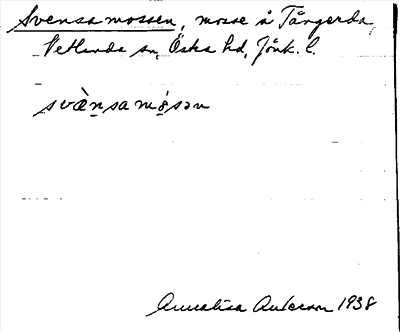 Svensamossen, mosse å Tångerda,
Vetlanda sn, Östra hd, Jönk. l.
svæ̀nsamósən
Annalisa Anderson 1938